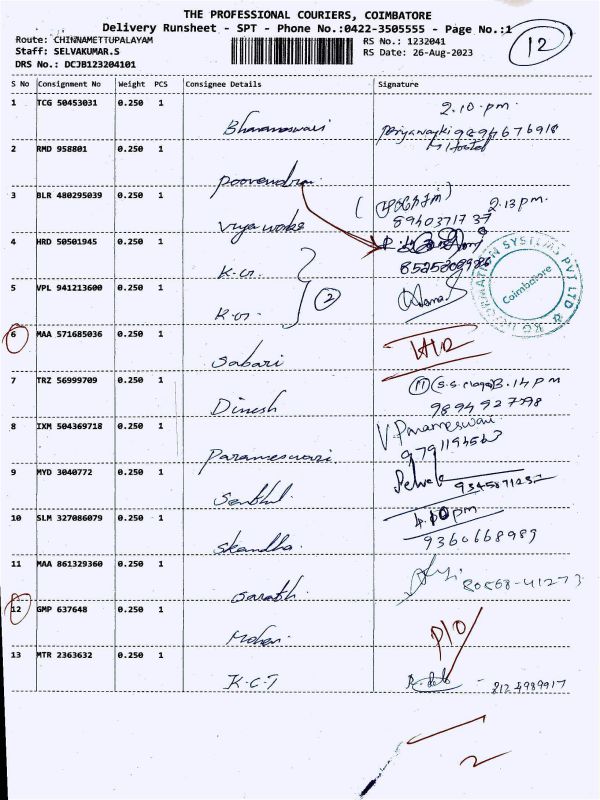 THE PROFESSIONAL COURIERS, COIMBATORE
Delivery Runsheet - SPT - Phone No.:0422-3505555 - Page No.:1
12
Route: CHINNAMETTUPALAYAM
RS No.: 1232041
Staff: SELVAKUMAR.S
RS Date: 26-Aug-2023
DRS No.: DCJB123204101
S No Consignment No Weight PCS Consignee Details Signature
1 TCG 50453031 0.250 1
2.10.pm
Bhavaneswari
2 RMD 958801 0.250 1
Poovendran
3 BLR 480295039 0.250 1
2.13 pm.
8940371737
Vijya works
4 HRD 50501945 0.250 1
K.G.
5 VPL 941213600 0.250 1
2
K.G.
Coimbatore
6 MAA 571685036 0.250 1
Sabari
7 TRZ 56999709 0.250 1
3.14 pm
Dinesh
9894927798
8 IXM 504369718 0.250 1
V. Parameswari
Parameswari
9 MYD 3040772 0.250 1
Senthil
10 SLM 327086079 0.250 1
4.10 pm
Skandha
9360668989
11 MAA 861329360 0.250 1
80568-41273
Sarath
12 GMP 637648 0.250 1
P/O
Mohan
13 MTR 2363632 0.250 1
K.C.T
2